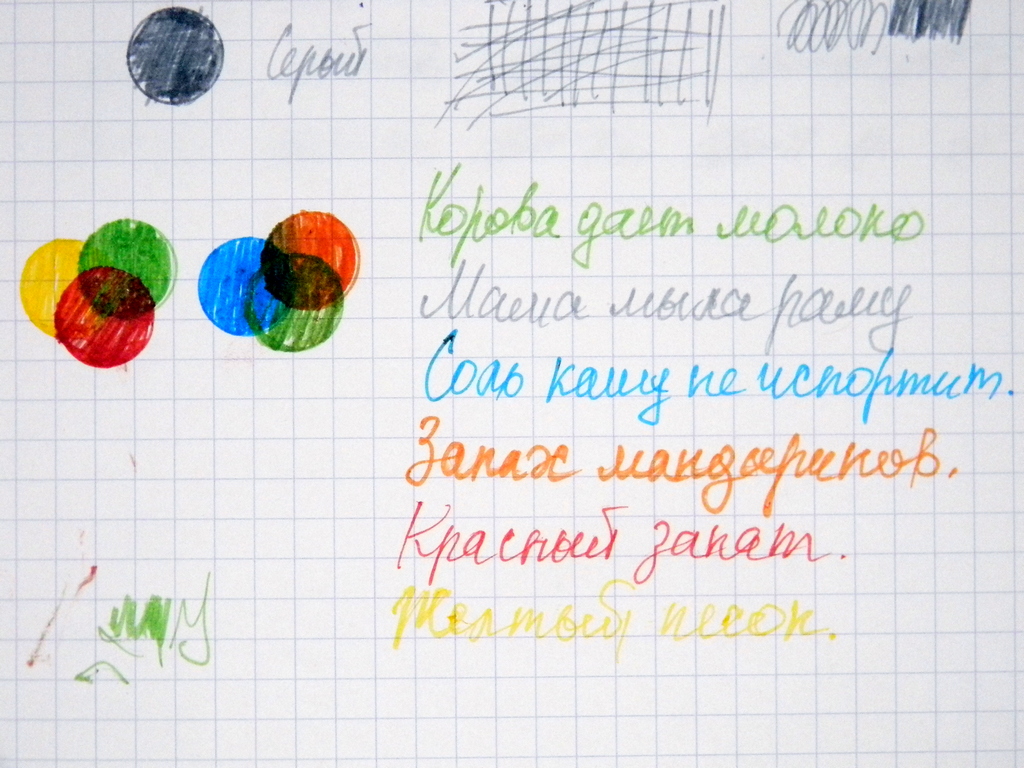 Серый
Корова дает молоко
Мама мыла раму
Соль кашу не испортит.
Запах мандаринов.
Красный закат.
Желтый песок.